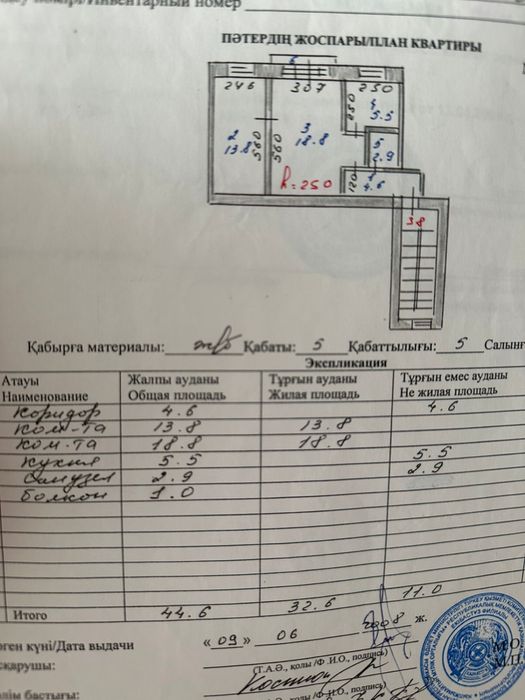 нтарный номер
ПӘТЕРДІҢ ЖОСПАРЫ/ПЛАН КВАРТИРЫ
6
246 307 250
4
5.5
250
2
13.8
560
560
3
18.8
5
2.9
120
1
4.6
h=250
38
Қабырға материалы: ж/б Қабаты: 5 Қабаттылығы: 5 Салынғ
Экспликация
Атауы Жалпы ауданы Тұрғын ауданы Тұрғын емес ауданы
Наименование Общая площадь Жилая площадь Не жилая площадь
Коридор 4.6 4.6
Ком-та 13.8 13.8
Ком-та 18.8 18.8
Кухня 5.5 5.5
Санузел 2.9 2.9
Болкон 1.0
Итого 44.6 32.6 11.0
ген күні/Дата выдачи « 09 » 06 2008 ж.
қарушы:
(Т.А.Ә., қолы /Ф.И.О., подпись)
М.О.
М.П.
(Т.А.Ә., қолы /Ф.И.О., подпись)
лім бастығы: